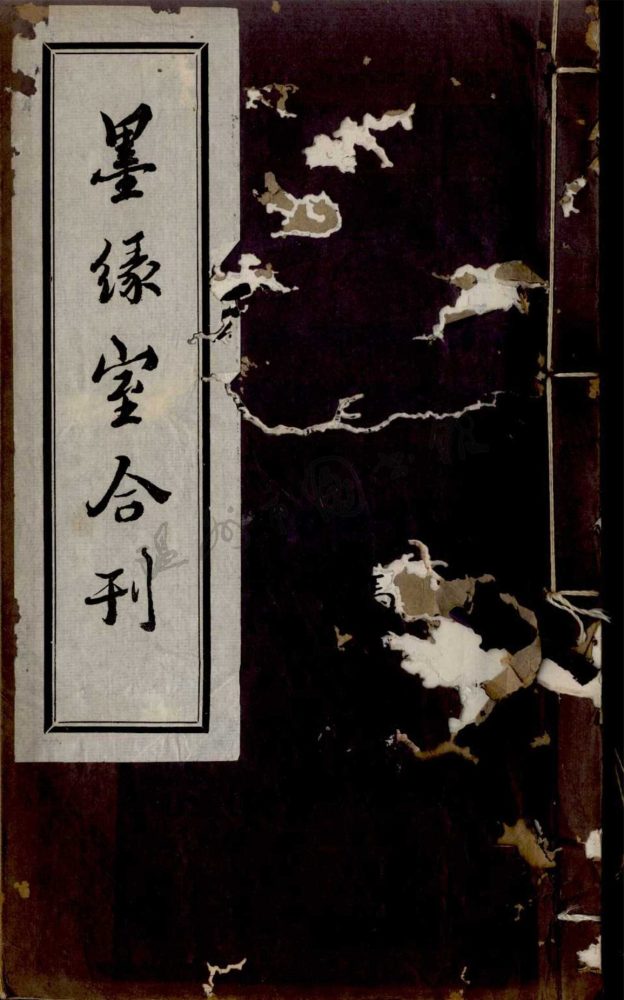 墨缘室合刊